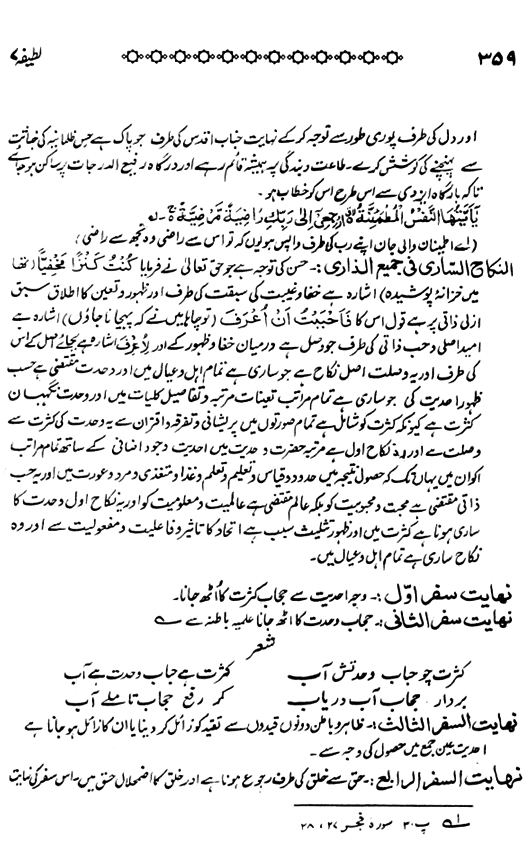 ۳۵۹ لطیفہ ۷
اور دل کی طرف پوری طور سے توجہ کر کے نہایت جناب اقدس کی طرف جو پاک ہے جس ظلمانیہ کی خباثت
سے پہنچنے کی کوشش کرے۔ طاعت و بندگی پر ہمیشہ قائم رہے اور درگاہ رفیع الدرجات پر ساکن ہو جائے
تاکہ بارگاہ ایزدی سے اس طرح اس کو خطاب ہو۔
یٰٓاَیَّتُهَا النَّفْسُ الْمُطْمَئِنَّةُ ۝ ارْجِعِیْٓ اِلٰی رَبِّكِ رَاضِیَةً مَّرْضِیَّةً ۝ ۔ لہ
(اے اطمینان والی جان اپنے رب کی طرف واپس ہو یوں کہ تو اس سے راضی وہ تجھ سے راضی)
النکاح الساری فی جمیع الذراری :۔ حسن کی توجہ ہے جو حق تعالیٰ نے فرمایا کُنْتُ کَنْزًا مَخْفِیًّا (تھا
میں خزانۂ پوشیدہ) اشارہ ہے خفا و غیبت کی سبقت کی طرف اور ظہور و تعین کا اطلاق سبق
ازلی ذاتی پر ہے قول اس کا فَاَحْبَبْتُ اَنْ اُعْرَفَ (تو چاہا میں نے کہ پہچانا جاؤں) اشارہ ہے
امید اصلی و حب ذاتی کی طرف جو وصل ہے درمیان خفا و ظہور کے اور لِاُعْرَفَ اشارہ ہے بجائے اصل کے اس
کی طرف اور یہ وصلت اصل نکاح ہے جو ساری ہے تمام اہل و عیال میں اور وحدت مقتضی ہے حسب
ظہور احدیت کی جو ساری ہے تمام مراتب تعینات مرتبہ و تفاصیل کلیات میں اور وحدت نگہبان
کثرت ہے کیونکہ کثرت کو شامل ہے تمام صورتوں میں پریشانی و تفرقہ و اقران سے یہ وحدت کی کثرت سے
وصلت ہے اور نکاح اول ہے مرتبہ حضرت وحدیت میں احدیت وجود انسانی کے ساتھ تمام مراتب
اکوان میں یہاں تک کہ حصول نتیجہ میں حدود و قیاس و تعلیم و تعلم و غذا و متغذی و مرد و عورت ہیں اور یہ حب
ذاتی مقتضی ہے محبت و محبوبیت کو بلکہ عالم مقتضی ہے عالمیت و معلومیت کو اور یہ نکاح اول وحدت کا
ساری ہونا ہے کثرت میں اور ظہور تثلیث سبب ہے اتحاد کا تاثیر و فاعلیت و مفعولیت سے اور وہ
نکاح ساری ہے تمام اہل و عیال میں۔
نہایت سفر اوّل :۔ وجہ احدیت سے حجاب کثرت کا اٹھ جانا۔
نہایت سفر الثانی :۔ حجاب وحدت کا اٹھ جانا علمیہ باطنہ سے
شعر
کثرت چو حباب وحدتش آب کثرت ہے حباب وحدت ہے آب
بردار حجاب آب دریاب کر رفع حجاب تا ملے آب
نہایت السفر الثالث :۔ ظاہر و باطن دونوں قیدوں سے تقید کو زائل کر دینا یا ان کا زائل ہو جانا ہے
احدیت عین جمع میں حصول کی وجہ سے۔
نہایت السفر الرابع :۔ حق سے خلق کی طرف رجوع ہونا ہے اور خلق کا اضمحلال حق میں یہ اس سفر کی نہایت
لہ پ ۳۰ سورہ فجر ۲۷، ۲۸